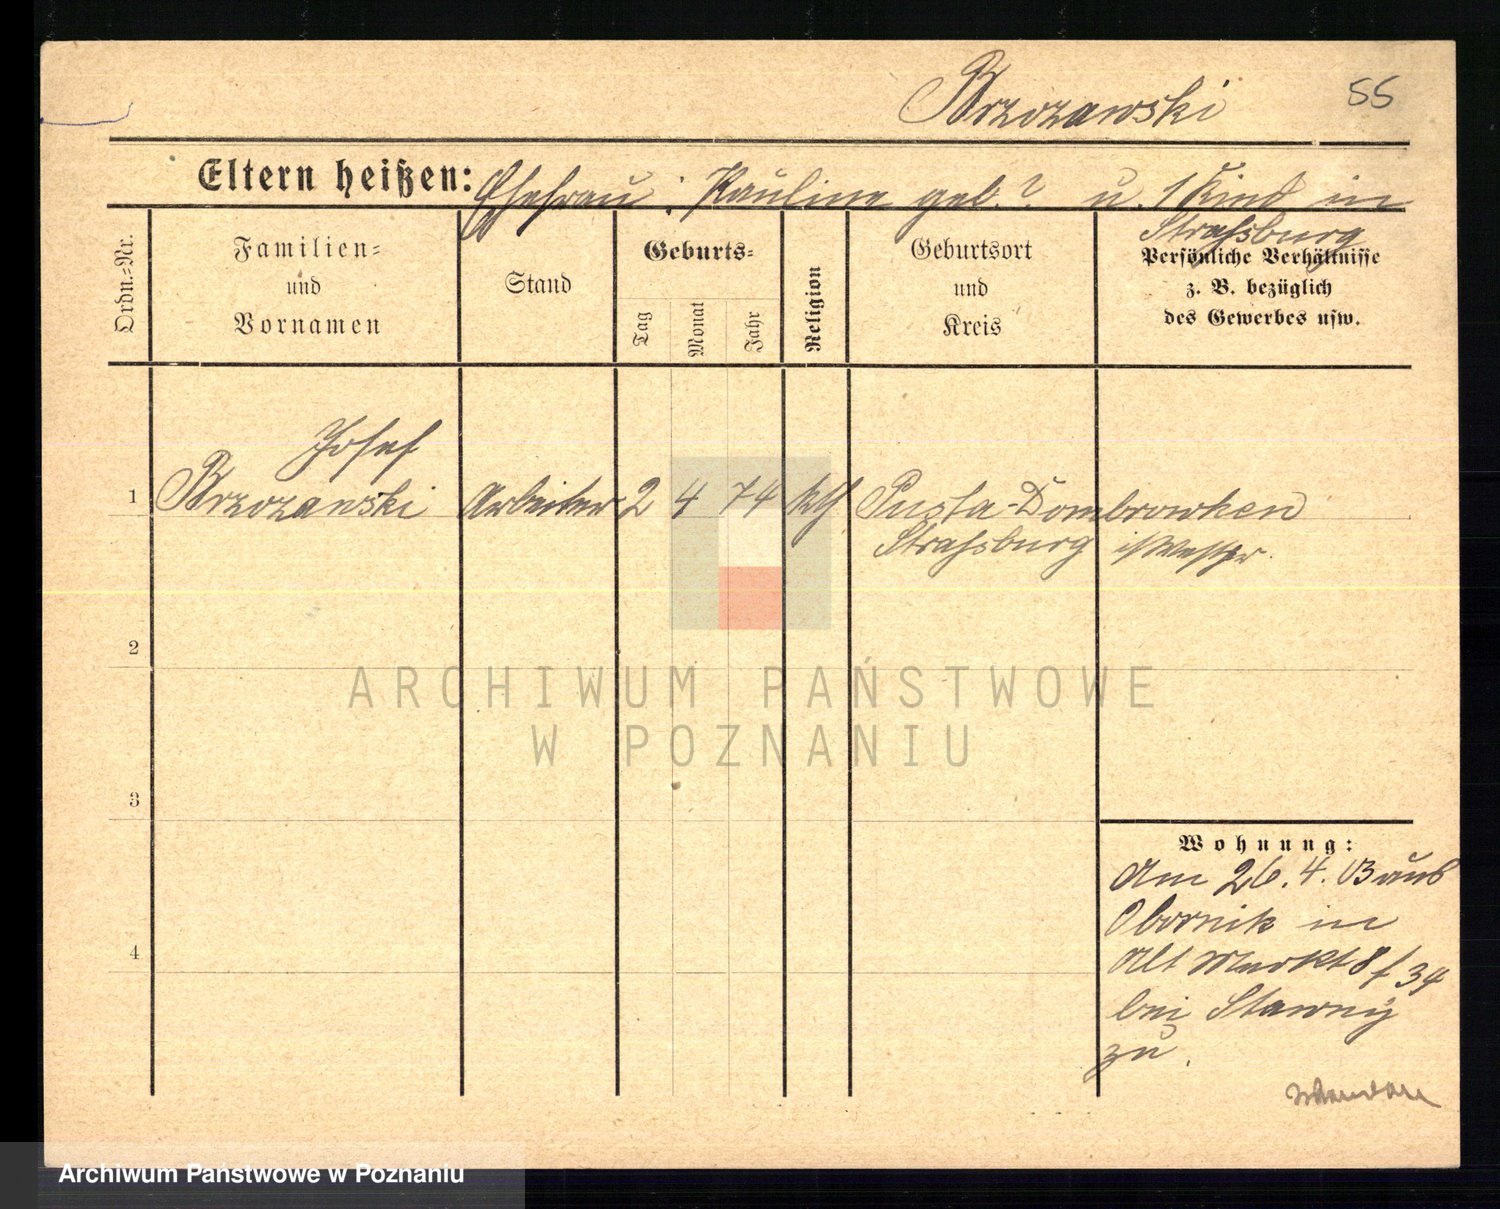 Brzozawski 55
Eltern heißen: Ehefrau: Pauline geb. ? u. 1 Kind in
Strassburg
Ordn.=Nr.
Familien=
und
Vornamen
Stand
Geburts=
Tag
Monat
Jahr
Religion
Geburtsort
und
Kreis
Persönliche Verhältnisse
z. B. bezüglich
des Gewerbes usw.
Josef
1 Brzozawski Arbeiter 2 4 74 kth Pusta-Dombrowken
Strassburg i/Westpr.
2
ARCHIWUM PAŃSTWOWE
W POZNANIU
3
Wohnung:
Am 26. 4. 03 aus
Obornik in
4
Alt Markt 8 f 34
bei Stawny
zu.
Archiwum Państwowe w Poznaniu